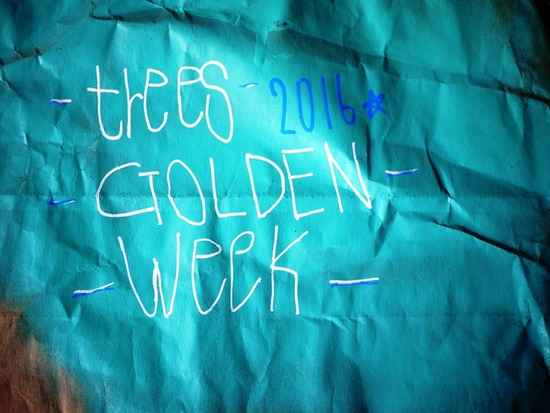 - trees - 2016 ☆
- GOLDEN -
- week -